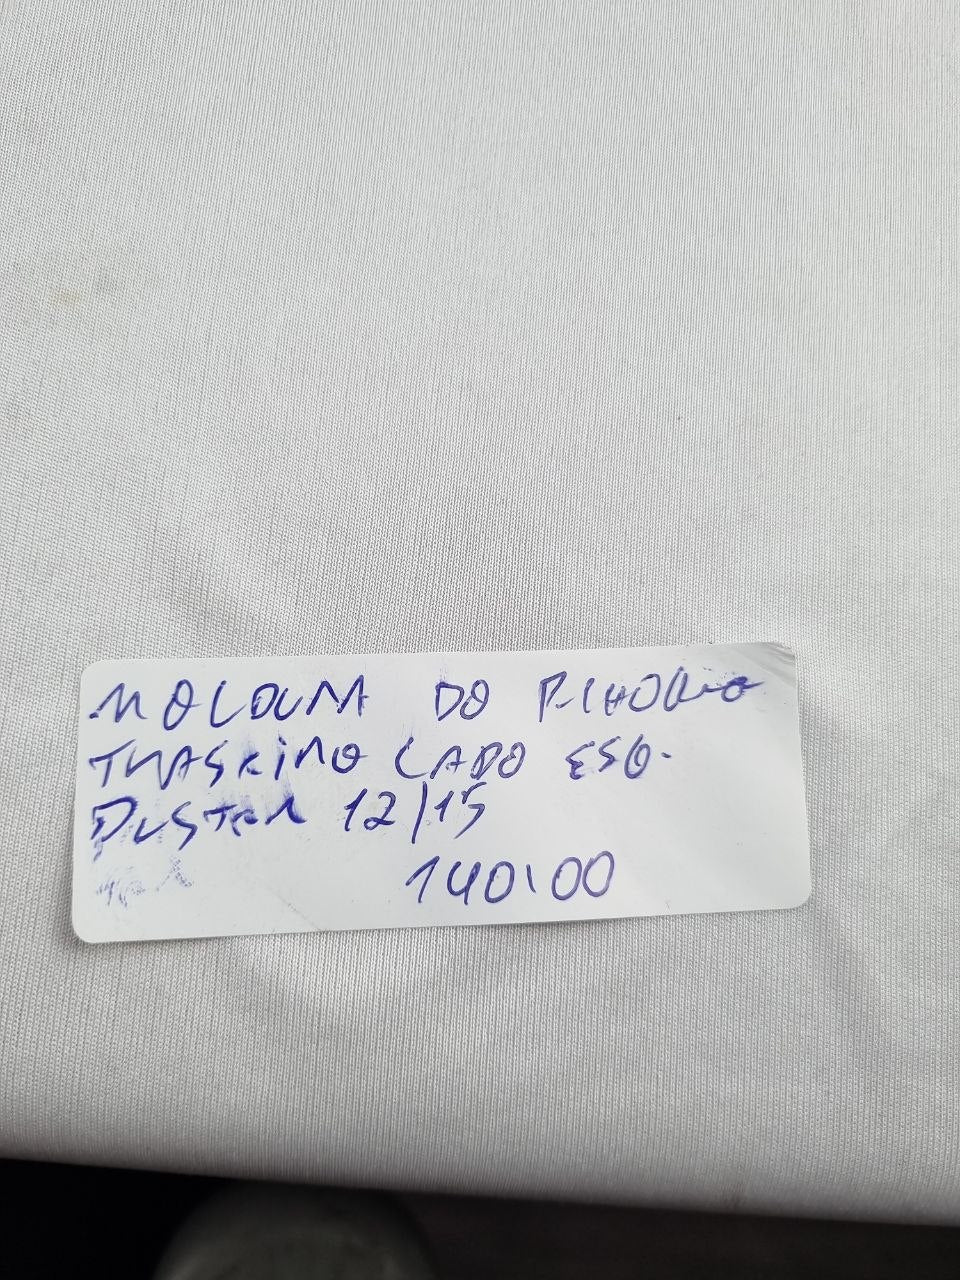 MOLDURA DO P-CHOQUE
TRASEIRO LADO ESQ.
DUSTER 12/15
140,00